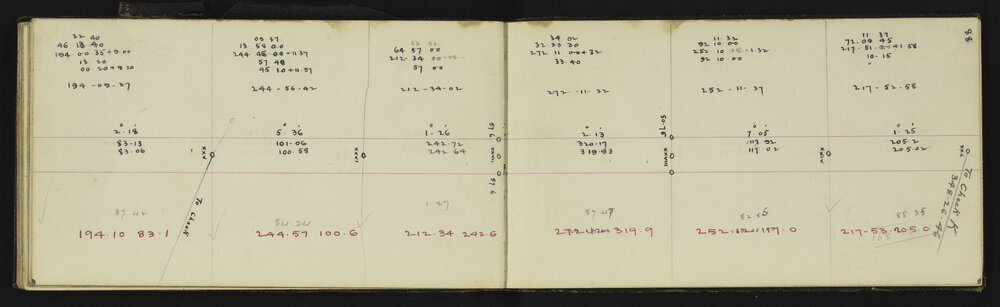 22 40
46 13 40
194 00 35+9.00
13 20
00 20+9.20
194-09-37
2.18
83.13
83.06
XXV
To Check
87 42
194.10 83.1
09 37
13 58 00
244 45.00+11.37
57 48
45 10+11.57
244-56-42
5.36
101.06
100.58
XXVI
84 24
244.57 100.6
64 57 00
212 34
57 00
212-34-02
1.26
242.72
242.64
57.6
XXVII
57.6
1 27
212.34 242.6
34 02
32 33 30
272 11 00+32
33.40
272-11-32
2.13
320.17
319.83
50.78
XXVIII
87 47
319.9
11 32
92 10 00
252 10
1.32
92 10 00
252-11-37
7.05
117 92
117 02
XXIV
82 55
252
117.0
11 37
72.09 45
217.51 00+1.58
10.15
217-52-58
1.25
205.2
205.02
XXX
To Check K
348.26.46
85 35
217-53.205.0
88